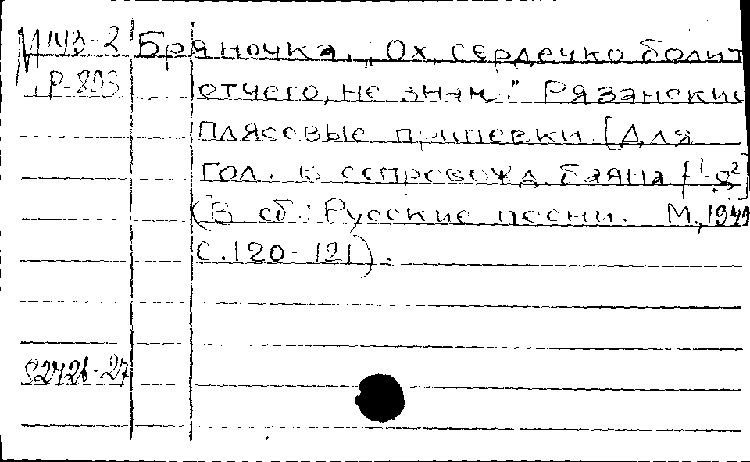 М 143-2 Бряночка. „Ох, сердечко болит
Р-893 отчего, не знам." Рязанские
плясовые припевки. [Для
гол. в сопровожд. баяна f¹-g²]
(В сб.: Русские песни. М., 1949
С. 120-121).
S2426-27